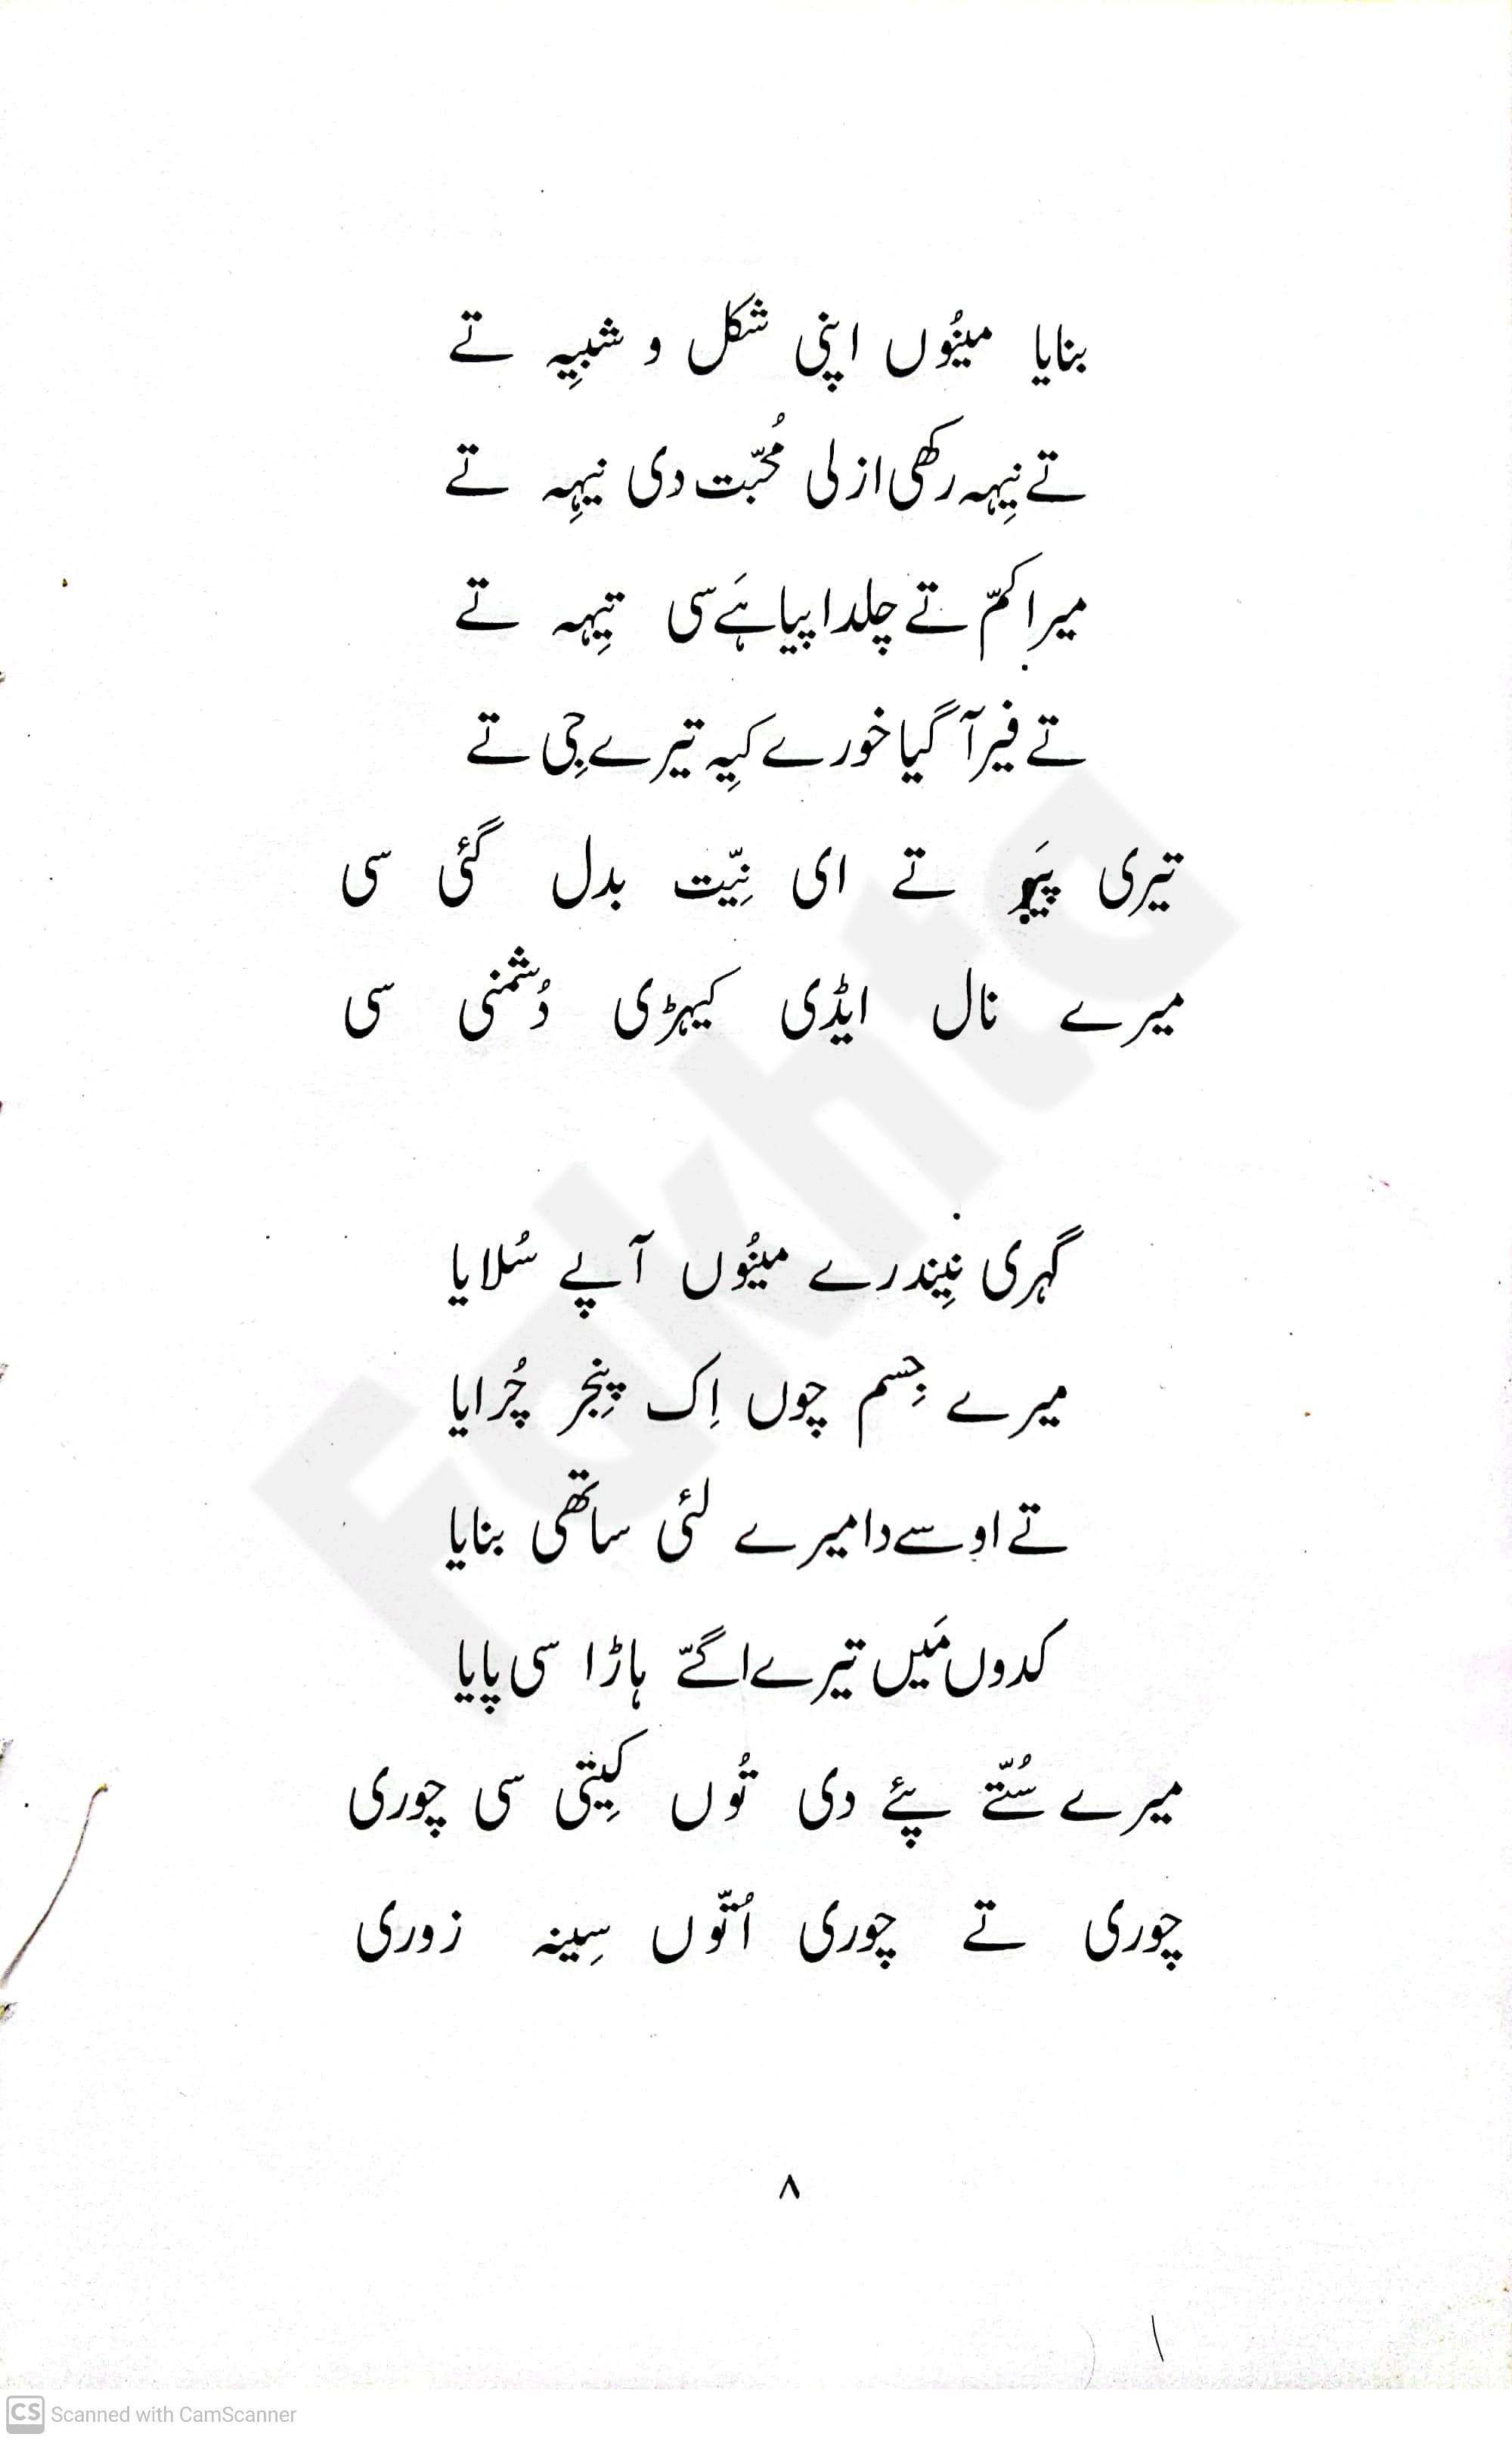 بنایا مینُوں اپنی شکل و شبیِہ تے
تے نِیہہ رکھی ازلی مُحبّت دی نیہِہ تے
میرا کمّ تے چلدا پیا ہَے سی تیِہہ تے
تے فیر آ گیا خورے کیِہ تیرے جِی تے
تیری پَیو تے ای نِیّت بدل گئی سی
میرے نال ایڈی کیہڑی دُشمنی سی
گہری نیِندرے مینُوں آپے سُلایا
میرے جِسم چوں اِک پنِجر چُرایا
تے اوسے دا میرے لئی ساتھی بنایا
کدوں مَیں تیرے اگےّ ہاڑا سی پایا
میرے سُتّے پئے دی تُوں کیِتی سی چوری
چوری تے چوری اُتّوں سِینہ زوری
۸
Fakhta
CS Scanned with CamScanner